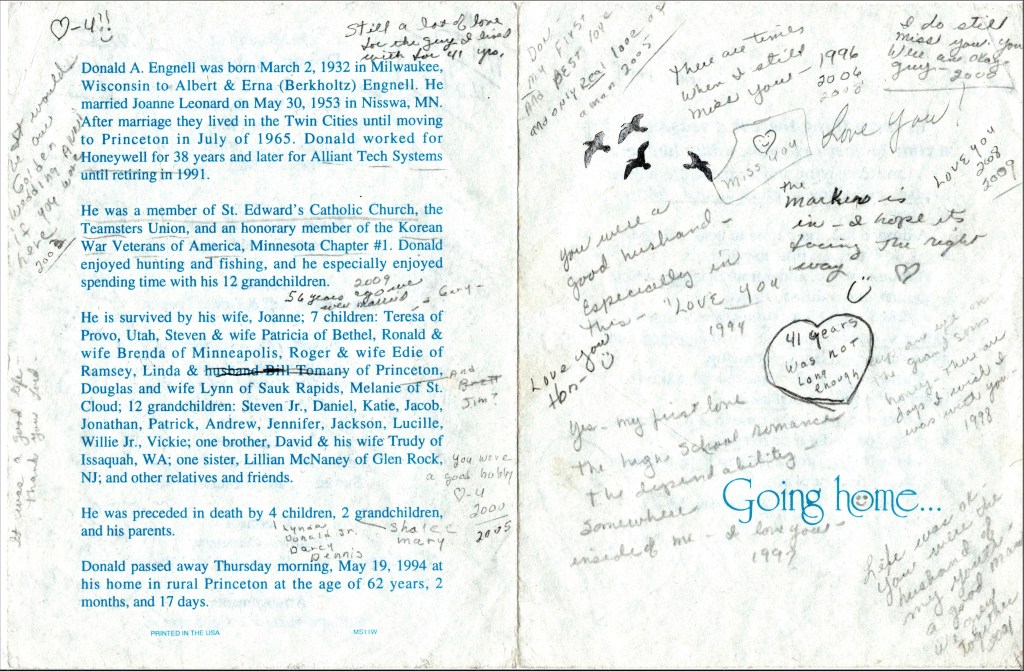 ♡-4!!
Still a lot of love
for the guy I lived
with for 41 yrs.
Donald A. Engnell was born March 2, 1932 in Milwaukee,
Wisconsin to Albert & Erna (Berkholtz) Engnell. He
married Joanne Leonard on May 30, 1953 in Nisswa, MN.
After marriage they lived in the Twin Cities until moving
to Princeton in July of 1965. Donald worked for
Honeywell for 38 years and later for Alliant Tech Systems
until retiring in 1991.
would
be our
Golden
Wedding
if
you
were
here
2003
He was a member of St. Edward's Catholic Church, the
Teamsters Union, and an honorary member of the Korean
War Veterans of America, Minnesota Chapter #1. Donald
enjoyed hunting and fishing, and he especially enjoyed
spending time with his 12 grandchildren.
2009
56 years ago we
were married
He is survived by his wife, Joanne; 7 children: Teresa of
Provo, Utah, Steven & wife Patricia of Bethel, Ronald &
wife Brenda of Minneapolis, Roger & wife Edie of
Ramsey, Linda & husband Bill Tomany of Princeton,
Douglas and wife Lynn of Sauk Rapids, Melanie of St.
Cloud; 12 grandchildren: Steven Jr., Daniel, Katie, Jacob,
Jonathan, Patrick, Andrew, Jennifer, Jackson, Lucille,
Willie Jr., Vickie; one brother, David & his wife Trudy of
Issaquah, WA; one sister, Lillian McNaney of Glen Rock,
NJ; and other relatives and friends.
And
Brett
Jim?
It was a good life
Thank you Lord
you were
a good hubby
♡-4
2000
2005
He was preceded in death by 4 children, 2 grandchildren,
and his parents.
Lynda
Donald Jr.
Darcy
Dennis
Shalee
Mary
Donald passed away Thursday morning, May 19, 1994 at
his home in rural Princeton at the age of 62 years, 2
months, and 17 days.
PRINTED IN THE USA
MS11W
Don
my First
and BEST love
and only real love of
a man
2005
There are times
when I still
miss you -
1996
2006
2008
I do still
miss you. You
were an okay
guy - 2008
Love You!
♡
miss you
Love you
2008
2009
the
marker is
in - I hope its
facing the right
way
♡
You were a
good husband -
Especially in
this - "Love you"
1994
Love you
Hon -
41 years
was not
long
enough
the grand sons
honey - There are
days I wish I
was with you -
1998
Yes - my first love
the high school romance
the dependability -
Somewhere
inside of me - I love you -
1997
Going home...
Life was ok -
you were the
husband of
my youth
a good man